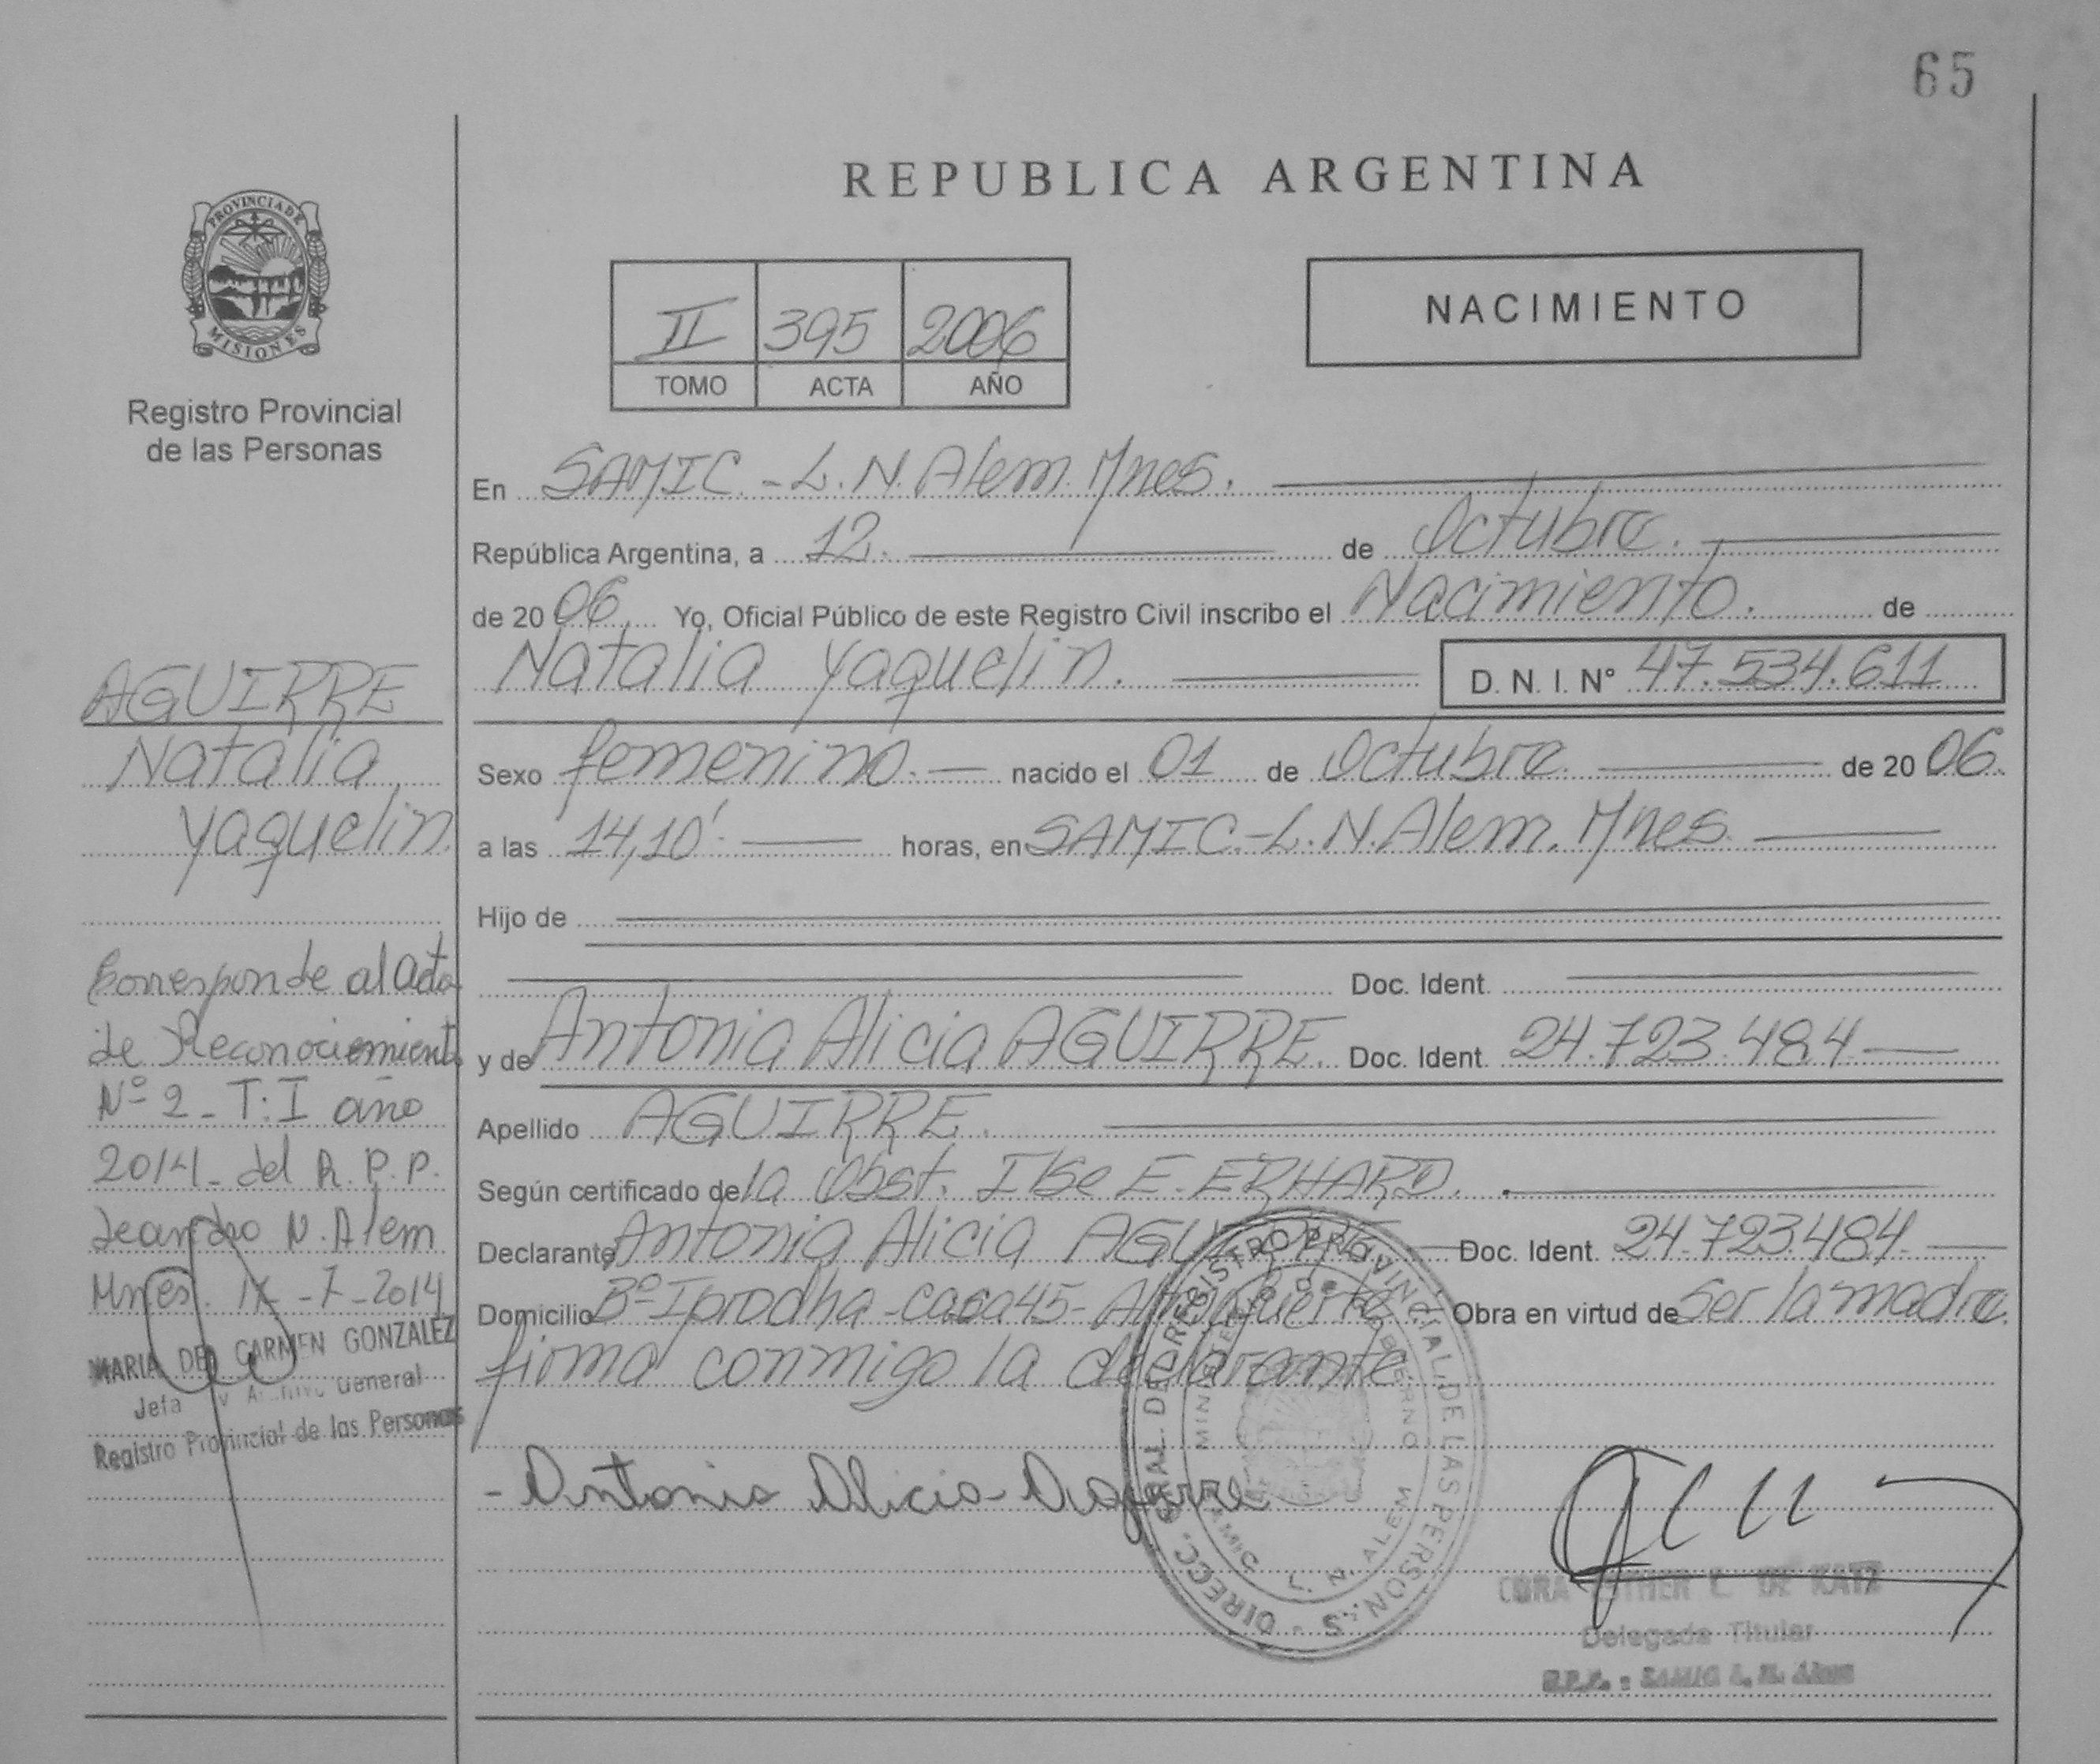 65
REPUBLICA ARGENTINA
PROVINCIA DE
MISIONES
Registro Provincial
de las Personas
II 395 2006
TOMO ACTA AÑO
NACIMIENTO
En SAMIC.-L.N.Alem.Mnes.
República Argentina, a 12. de Octubre.
de 2006 Yo, Oficial Público de este Registro Civil inscribo el Nacimiento. de
Natalia Yaquelin. D. N. I. Nº 47.534.611
Sexo femenino. nacido el 01 de Octubre de 2006.
a las 14,10'. horas, en SAMIC.-L.N.Alem.Mnes.
Hijo de
Doc. Ident.
y de Antonia Alicia AGUIRRE. Doc. Ident. 24.723.484
Apellido AGUIRRE.
Según certificado de la Obst. Ilse E. ERHARD.
Declarante Antonia Alicia AGUIRRE Doc. Ident. 24.723.484
Domicilio Bº Iprodha-casa 45- Obra en virtud de Ser la madre.
firma conmigo la declarante
- Antonia Alicia Aguirre
AGUIRRE
Natalia
Yaquelin.
Corresponde al Acta
de Reconociemiento
Nº 2 - T: I año
2014 - del R.P.P.
Leandro N. Alem
Mnes. -7-2014
MARIA DEL CARMEN GONZALEZ
Jefa Archivo General
Registro Provincial de las Personas
DIRECC. GRAL. DEL REGISTRO PROVINCIAL DE LAS PERSONAS
MINISTERIO DE GOBIERNO
SAMIC L. N. ALEM
ESTHER L. DE KATZ
Delegada Titular
R.P.P. : SAMIC L. N. Alem